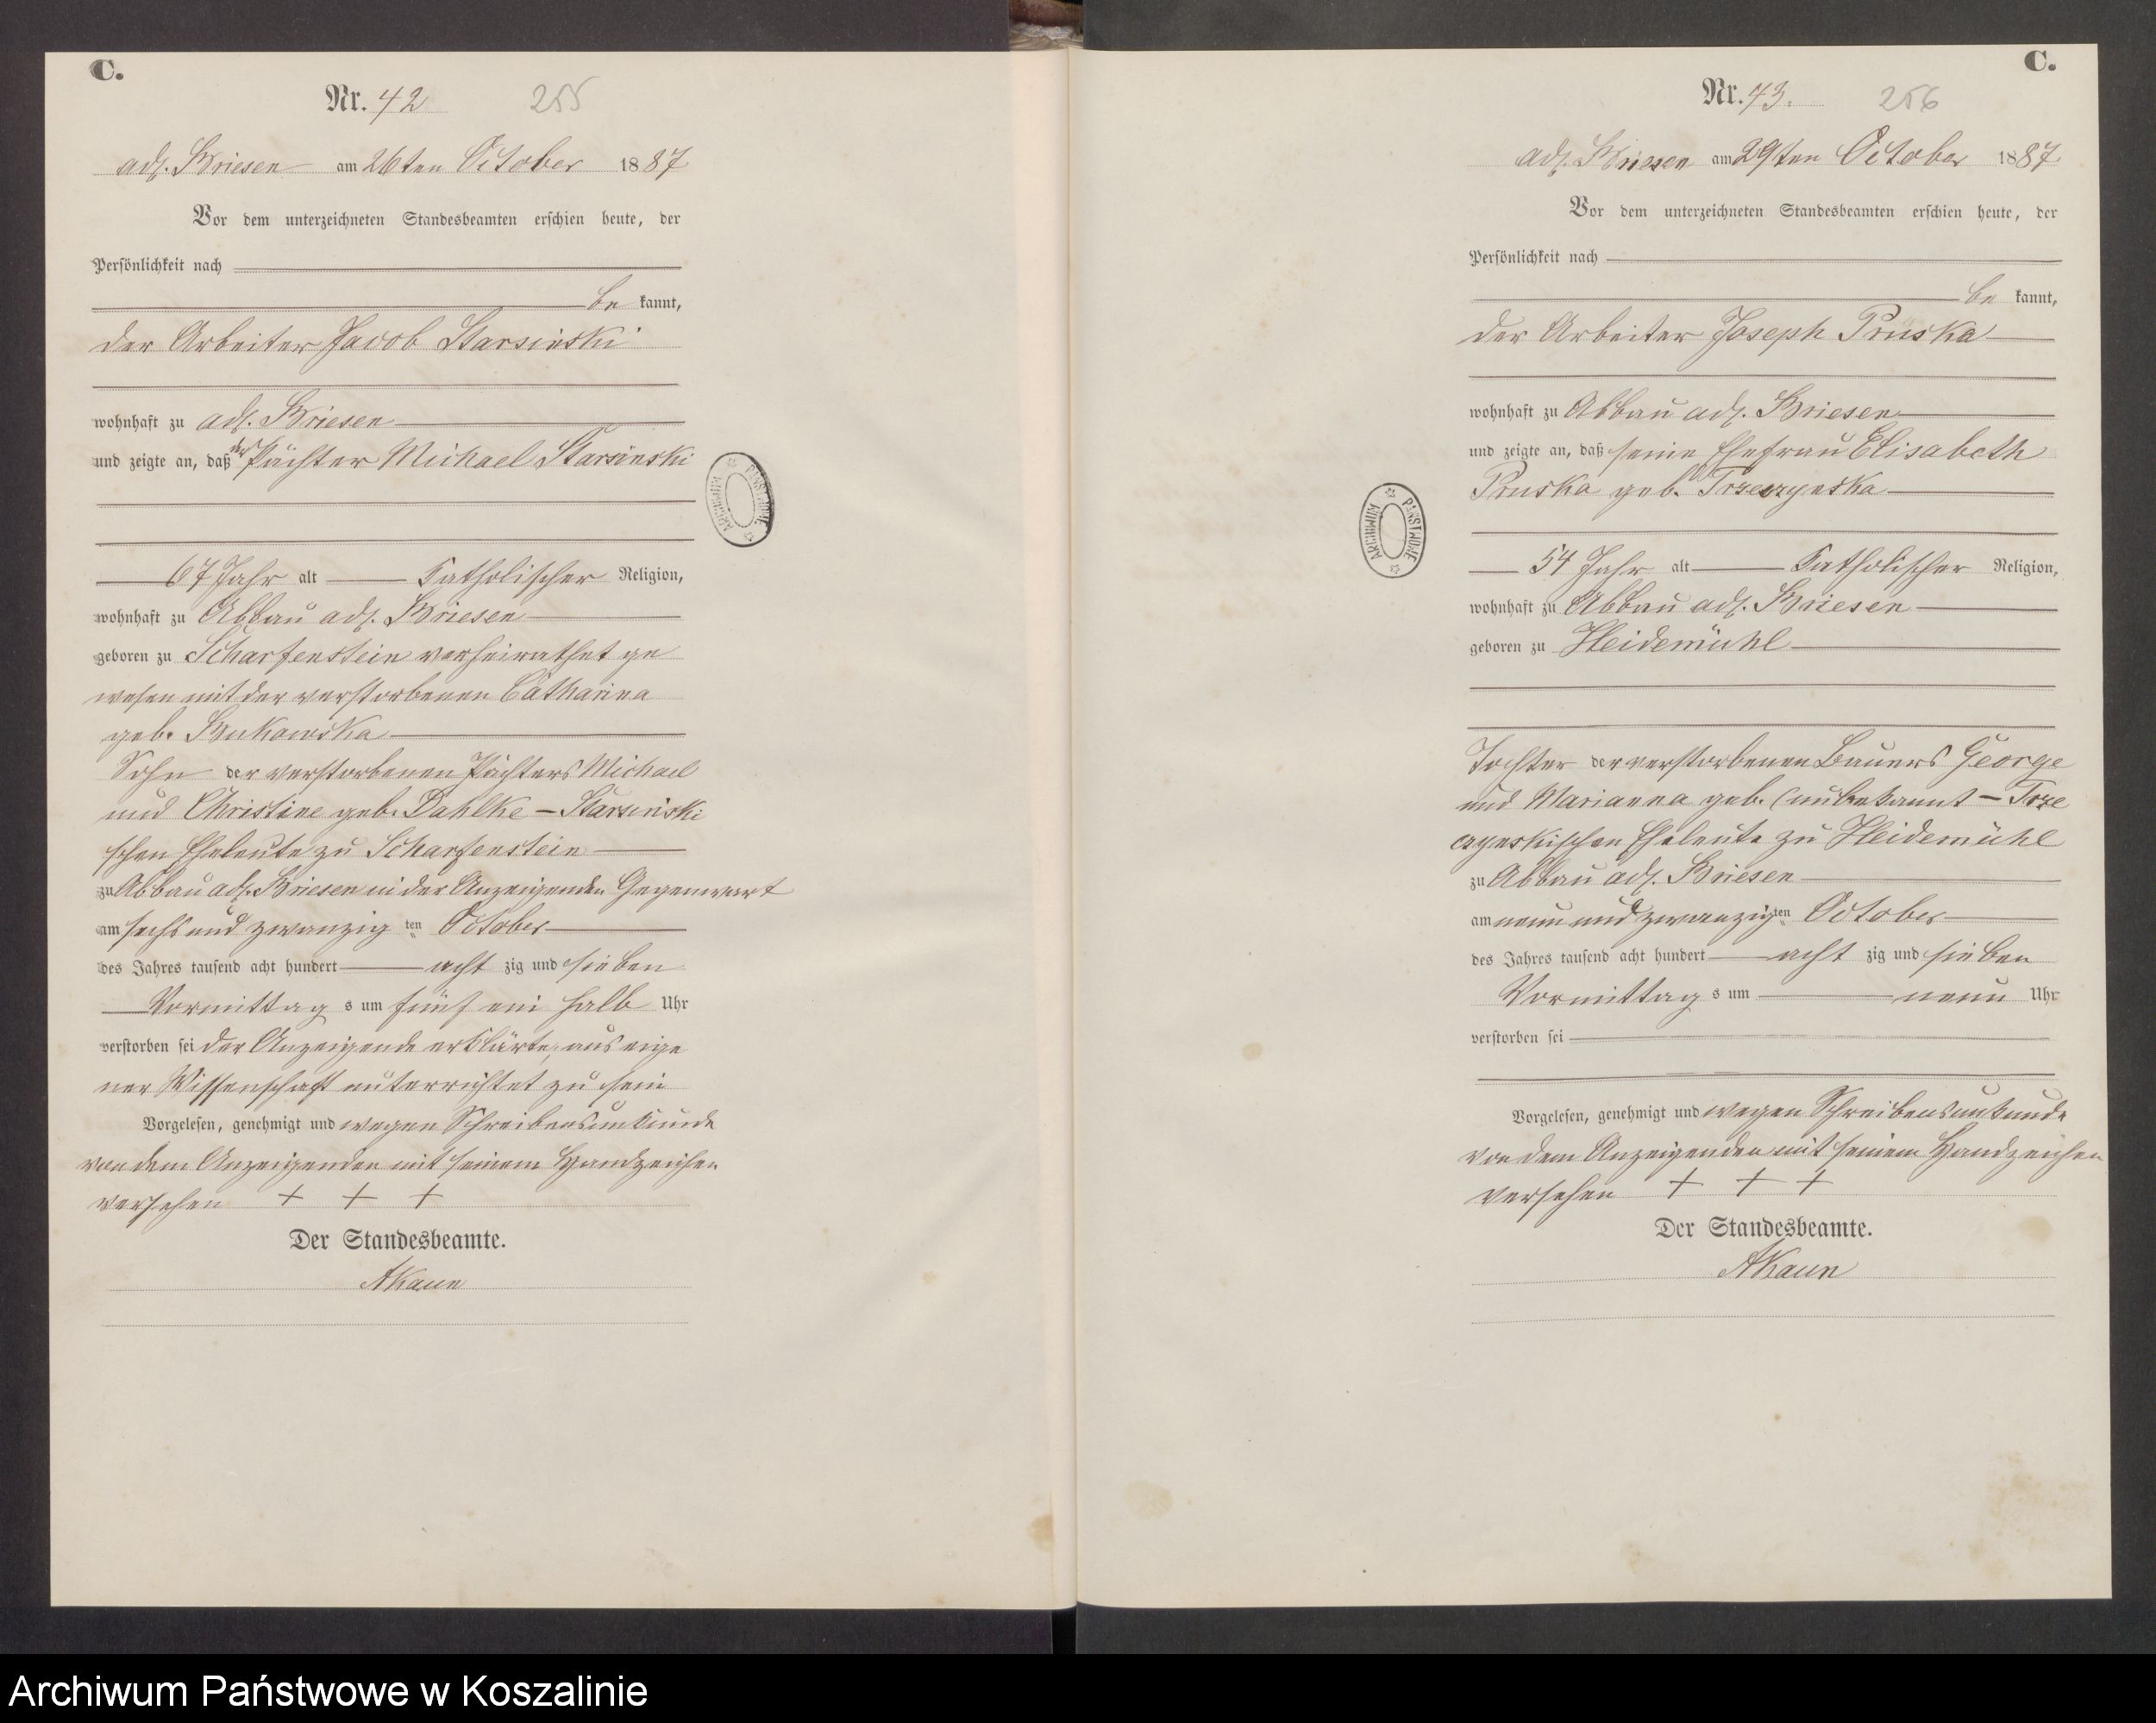 C.
Nr. 42 255
adl. Briesen am 26ten October 1887
Vor dem unterzeichneten Standesbeamten erschien heute, der
Persönlichkeit nach
be kannt,
der Arbeiter Jacob Starsinski
wohnhaft zu adl. Briesen
und zeigte an, daß der Pächter Michael Starsinski
67 Jahr alt Katholischer Religion,
wohnhaft zu Abbau adl. Briesen
geboren zu Scharfenstein verheirathet ge
wesen mit der verstorbenen Catharina
geb. Bukowska
Sohn der verstorbenen Pächters Michael
und Christine geb. Dahlke - Starsinski
schen Eheleute zu Scharfenstein
zu Abbau adl. Briesen in der Anzeigenden Gegenwart
am sechs und zwanzig ten October
des Jahres tausend acht hundert acht zig und sieben
Vormittag s um fünf ein halb Uhr
verstorben sei der Anzeigende erklärte, aus eige
ner Wissenschaft unterrichtet zu sein
Vorgelesen, genehmigt und wegen Schreibensunkunde
von dem Anzeigenden mit seinem Handzeichen
versehen + + +
Der Standesbeamte.
AKaun
ARCHIWUM PAŃSTWOWE
C.
Nr. 43. 256
adl. Briesen am 29ten October 1887
Vor dem unterzeichneten Standesbeamten erschien heute, der
Persönlichkeit nach
be kannt,
der Arbeiter Joseph Pruska
wohnhaft zu Abbau adl. Briesen
und zeigte an, daß seine Ehefrau Elisabeth
Pruska geb.
54 Jahr alt Katholischer Religion,
wohnhaft zu Abbau adl. Briesen
geboren zu Heidemühl
Tochter der verstorbenen Bauers George
und Marianna geb. (unbekannt - Trze
Eheleute zu Heidemühl
zu Abbau adl. Briesen
am neun und zwanzig ten October
des Jahres tausend acht hundert acht zig und sieben
Vormittag s um neun Uhr
verstorben sei
Vorgelesen, genehmigt und wegen Schreibensunkunde
von dem Anzeigenden mit seinem Handzeichen
versehen + + +
Der Standesbeamte.
AKaun
ARCHIWUM PAŃSTWOWE
Archiwum Państwowe w Koszalinie